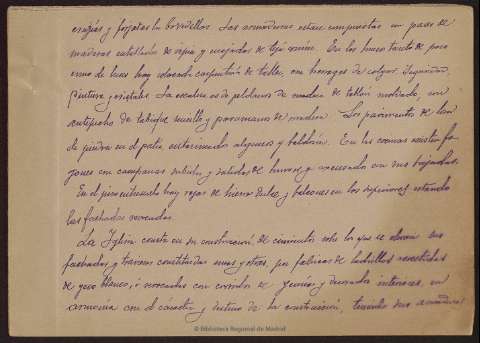 crujías y forjados la bovedillas. Las armaduras estan compuestas un pares de
maderas entablados de ripia y enlejados de teja comun. En los huecos tanto de paso
como de luces hay colocada carpintería de taller, con herrages de colgar y seguridad,
pintura y cristales. La escalera es de peldaños de madera de tablon moldado, con
antepecho de tabique sencillo y pasamanos de madera. Los pavimentos de losa
de piedra en el patio, entarimado algunos y baldosin. En las cocinas existen fo-
gones con campanas subidas y salidas de humos y vaciaderos con sus bajadas.
En el piso entresuelo hay rejas de hierro dulce y balcones en los superiores estando
las fachadas revocadas.
La Iglesia consta en su construcción de cimientos sobre los que se elevan sus
fachadas y traviesas constituidas unas y otras, por fabricas de ladrillos revestidas
de yeso blanco, y revocadas con corridos de y decorados interiores, en
armonía con el carácter y destino de la construcción, teniendo sus armaduras
© Biblioteca Regional de Madrid